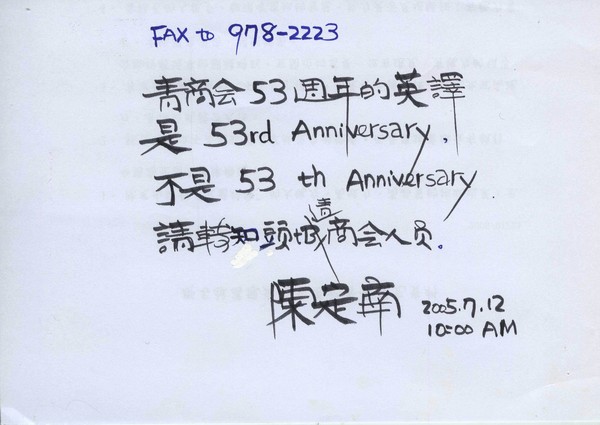 FAX to 978-2223
青商会53週年的英譯
是 53rd Anniversary.
不是 53 th Anniversary
請轉知頭城青商会人员.
陳定南 2005.7.12
10:00 AM